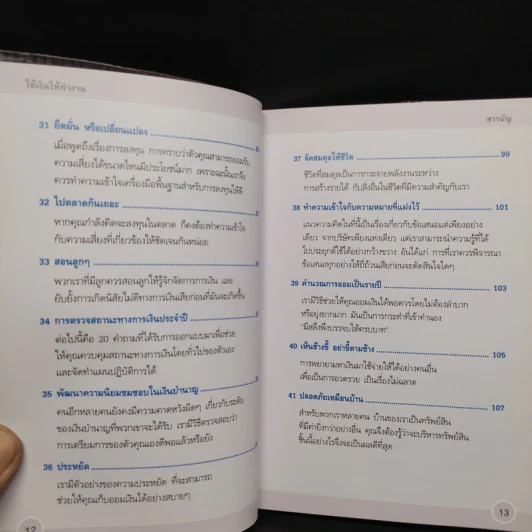 ใช้เงินให้ทำงาน
31 ยึดมั่น หรือเปลี่ยนแปลง
เมื่อพูดถึงเรื่องการลงทุน การทราบว่าตัวคุณสามารถยอมรับ
ความเสี่ยงได้ขนาดไหนมีประโยชน์มาก เพราะฉะนั้นเราจึง
ควรทำความเข้าใจเครื่องมือพื้นฐานสำหรับการลงทุนให้ดี
32 ไปตลาดกันเถอะ
หากคุณกำลังคิดจะลงทุนในตลาด ก็คงต้องทำความเข้าใจ
กับความเสี่ยงที่เกี่ยวข้องให้ชัดเจนกันหน่อย
33 สอนลูกๆ
พวกเราที่มีลูกควรสอนลูกให้รู้จักจัดการการเงิน และ
ยับยั้งการเกิดนิสัยไม่ดีทางการเงินเสียก่อนที่มันจะเกิดขึ้น
34 การตรวจสถานะทางการเงินประจำปี
ต่อไปนี้คือ 20 คำถามที่ได้รับการออกแบบมาเพื่อช่วย
ให้คุณควบคุมสถานะทางการเงินโดยทั่วไปของตัวเอง
และจัดทำแผนปฏิบัติการได้
35 พัฒนาความนิยมชมชอบในเงินบำนาญ
คนอีกหลายคนยังคงมีความคาดหวังผิดๆ เกี่ยวกับระดับ
ของเงินบำนาญที่พวกเขาจะได้รับ เรามีวิธีตรวจสอบว่า
การเตรียมการของตัวคุณเองดีพอแล้วหรือยัง
36 ประหยัด
เรามีตัวอย่างของความประหยัด ที่จะสามารถ
ช่วยให้คุณเก็บออมเงินได้อย่างสบายๆ
12
สารบัญ
37 จัดสมดุลให้ชีวิต 99
ชีวิตที่สมดุลเป็นการกระจายพลังงานระหว่าง
การสร้างรายได้ กับสิ่งอื่นในชีวิตที่มีความสำคัญกับเรา
38 ทำความเข้าใจกับความหมายที่แฝงไว้ 101
แนวความคิดในที่นี้เป็นเรื่องเกี่ยวกับข้อเสนอแต่เพียงอย่าง
เดียว จากบริษัทเพียงแห่งเดียว แต่เราสามารถนำความรู้ที่ได้
ไปประยุกต์ใช้ได้อย่างกว้างขวาง อันได้แก่ การที่เราควรพิจารณา
ข้อเสนอทุกอย่างให้ถี่ถ้วนเสียก่อนจะตัดสินใจใดๆ
39 คำนวณการออมเป็นรายปี 103
เรามีวิธีช่วยให้คุณออมเงินได้พอควรโดยไม่ต้องลำบาก
หรือยุ่งยากมาก มันเป็นการกระทำที่เข้าทำนอง
"มีสลึงพึงบรรจบให้ครบบาท"
40 เห็นช้างขี้ อย่าขี้ตามช้าง 105
การพยายามหาเงินมาใช้จ่ายให้ได้อย่างคนอื่น
เพื่อเป็นการอวดรวย เป็นเรื่องไม่ฉลาด
41 ปลอดภัยเหมือนบ้าน 107
สำหรับพวกเราหลายคน บ้านของเราเป็นทรัพย์สิน
ที่มีค่ายิ่งกว่าอย่างอื่น คุณจึงต้องรู้ว่าจะบริหารทรัพย์สิน
ชิ้นนี้อย่างไรจึงจะเป็นผลดีที่สุด
13